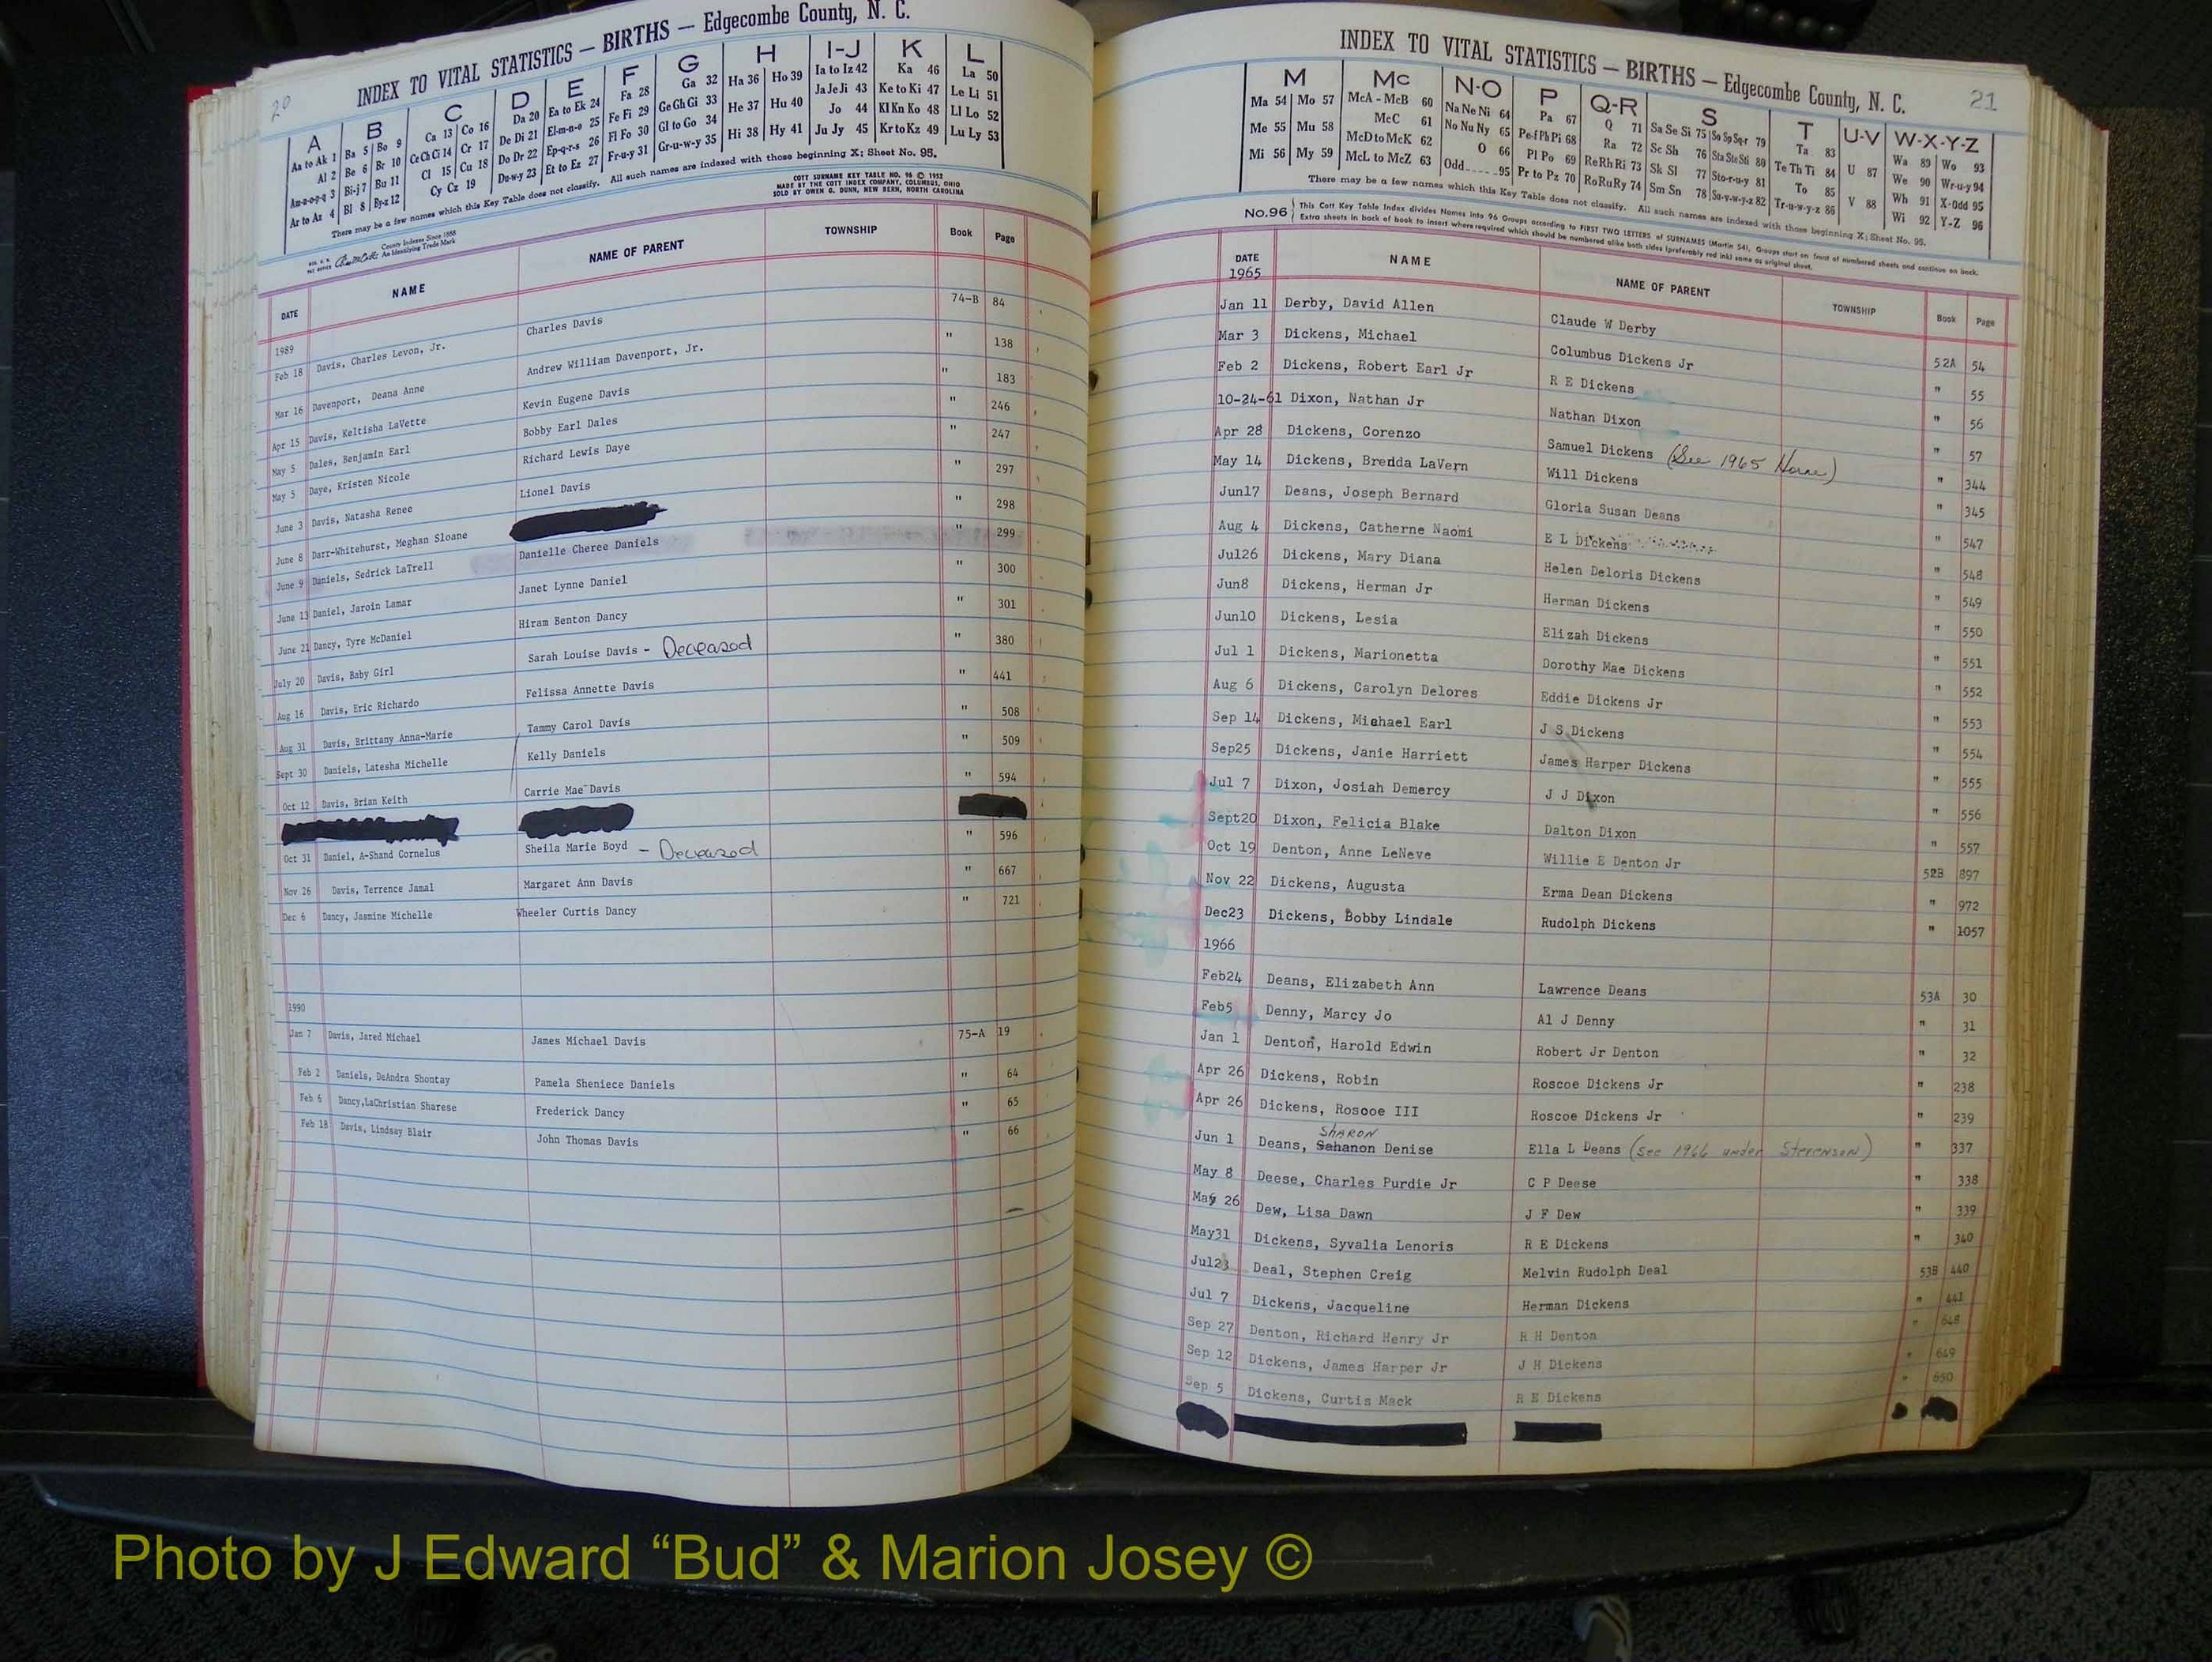 20
INDEX TO VITAL STATISTICS — BIRTHS — Edgecombe County, N. C.
A B C D E F G H I-J K L
Aa to Ak 1 Ba 5 Bo 9 Ca 13 Co 16 Da 20 Ea to Ek 24 Fa 28 Ga 32 Ha 36 Ho 39 Ia to Iz 42 Ka 46 La 50
Al 2 Be 6 Br 10 Ce Ch Ci 14 Cr 17 De Di 21 El-m-n-o 25 Fe Fi 29 Ge Gh Gi 33 He 37 Hu 40 Ja Je Ji 43 Ke to Ki 47 Le Li 51
Am-n-o-p-q 3 Bi-j 7 Bu 11 Cl 15 Cu 18 Do Dr 22 Ep-q-r-s 26 Fl Fo 30 Gl to Go 34 Hi 38 Hy 41 Jo 44 Kl Kn Ko 48 Ll Lo 52
Ar to Az 4 Bl 8 By-z 12 Cy Cz 19 Du-w-y 23 Et to Ez 27 Fr-u-y 31 Gr-u-w-y 35 Ju Jy 45 Kr to Kz 49 Lu Ly 53
There may be a few names which this Key Table does not classify. All such names are indexed with those beginning X; Sheet No. 95.
County Indexes Since 1888
An Identifying Trade Mark
COTT SURNAME KEY TABLE NO. 96 © 1952
MADE BY THE COTT INDEX COMPANY, COLUMBUS, OHIO
SOLD BY OWEN G. DUNN, NEW BERN, NORTH CAROLINA
DATE NAME NAME OF PARENT TOWNSHIP Book Page
1989
Feb 18 Davis, Charles Levon, Jr. Charles Davis 74-B 84
Mar 16 Davenport, Deana Anne Andrew William Davenport, Jr. " 138
Apr 15 Davis, Keltisha LaVette Kevin Eugene Davis " 183
May 5 Dales, Benjamin Earl Bobby Earl Dales " 246
May 5 Daye, Kristen Nicole Richard Lewis Daye " 247
June 3 Davis, Natasha Renee Lionel Davis " 297
June 8 Darr-Whitehurst, Meghan Sloane " 298
June 9 Daniels, Sedrick LaTrell Danielle Cheree Daniels " 299
June 13 Daniel, Jaroin Lamar Janet Lynne Daniel " 300
June 21 Dancy, Tyre McDaniel Hiram Benton Dancy " 301
July 20 Davis, Baby Girl Sarah Louise Davis - Deceased " 380
Aug 16 Davis, Eric Richardo Felissa Annette Davis " 441
Aug 31 Davis, Brittany Anna-Marie Tammy Carol Davis " 508
Sept 30 Daniels, Latesha Michelle Kelly Daniels " 509
Oct 12 Davis, Brian Keith Carrie Mae Davis " 594
Oct 31 Daniel, A-Shand Cornelus Sheila Marie Boyd - Deceased " 596
Nov 26 Davis, Terrence Jamal Margaret Ann Davis " 667
Dec 6 Dancy, Jasmine Michelle Wheeler Curtis Dancy " 721
1990
Jan 7 Davis, Jared Michael James Michael Davis 75-A 19
Feb 2 Daniels, DeAndra Shontay Pamela Sheniece Daniels " 64
Feb 6 Dancy,LaChristian Sharese Frederick Dancy " 65
Feb 18 Davis, Lindsay Blair John Thomas Davis " 66
INDEX TO VITAL STATISTICS — BIRTHS — Edgecombe County, N. C.
21
M Mc N-O P Q-R S T U-V W-X-Y-Z
Ma 54 Mo 57 McA - McB 60 Na Ne Ni 64 Pa 67 Q 71 Sa Se Si 75 So Sp Sq-r 79 Ta 83 U 87 Wa 89 Wo 93
Me 55 Mu 58 McC 61 No Nu Ny 65 Pe-f Ph Pi 68 Ra 72 Sc Sh 76 Sta Ste Sti 80 Te Th Ti 84 V 88 We 90 Wr-u-y 94
Mi 56 My 59 McD to McK 62 O 66 Pl Po 69 Re Rh Ri 73 Sk Sl 77 Sto-r-u-y 81 To 85 Wh 91 X-Odd 95
McL to McZ 63 Odd 95 Pr to Pz 70 Ro Ru Ry 74 Sm Sn 78 Su-v-w-y-z 82 Tr-u-w-y-z 86 Wi 92 Y-Z 96
There may be a few names which this Key Table does not classify. All such names are indexed with those beginning X; Sheet No. 95.
No.96 This Cott Key Table Index divides Names into 96 Groups according to FIRST TWO LETTERS of SURNAMES (Martin 54). Groups start on front of numbered sheets and continue on back.
Extra sheets in back of book to insert where required which should be numbered alike both sides (preferably red ink) same as original sheet.
DATE NAME NAME OF PARENT TOWNSHIP Book Page
1965
Jan 11 Derby, David Allen Claude W Derby 52A 54
Mar 3 Dickens, Michael Columbus Dickens Jr " 55
Feb 2 Dickens, Robert Earl Jr R E Dickens " 56
10-24-61 Dixon, Nathan Jr Nathan Dixon " 57
Apr 28 Dickens, Corenzo Samuel Dickens (See 1965 Horne) " 344
May 14 Dickens, Brenda LaVern Will Dickens " 345
Jun17 Deans, Joseph Bernard Gloria Susan Deans " 547
Aug 4 Dickens, Catherne Naomi E L Dickens " 548
Jul26 Dickens, Mary Diana Helen Deloris Dickens " 549
Jun8 Dickens, Herman Jr Herman Dickens " 550
Jun10 Dickens, Lesia Elizah Dickens " 551
Jul 1 Dickens, Marionetta Dorothy Mae Dickens " 552
Aug 6 Dickens, Carolyn Delores Eddie Dickens Jr " 553
Sep 14 Dickens, Michael Earl J S Dickens " 554
Sep25 Dickens, Janie Harriett James Harper Dickens " 555
Jul 7 Dixon, Josiah Demercy J J Dixon " 556
Sept20 Dixon, Felicia Blake Dalton Dixon " 557
Oct 19 Denton, Anne LeNeve Willie E Denton Jr 52B 897
Nov 22 Dickens, Augusta Erma Dean Dickens " 972
Dec23 Dickens, Bobby Lindale Rudolph Dickens " 1057
1966
Feb24 Deans, Elizabeth Ann Lawrence Deans 53A 30
Feb5 Denny, Marcy Jo Al J Denny " 31
Jan 1 Denton, Harold Edwin Robert Jr Denton " 32
Apr 26 Dickens, Robin Roscoe Dickens Jr " 238
Apr 26 Dickens, Roscoe III Roscoe Dickens Jr " 239
SHARON
Jun 1 Deans, Sahanon Denise Ella L Deans (see 1966 under Stevenson) " 337
May 8 Deese, Charles Purdie Jr C P Deese " 338
May 26 Dew, Lisa Dawn J F Dew " 339
May31 Dickens, Syvalia Lenoris R E Dickens " 340
Jul23 Deal, Stephen Creig Melvin Rudolph Deal 53B 440
Jul 7 Dickens, Jacqueline Herman Dickens " 441
Sep 27 Denton, Richard Henry Jr R H Denton " 648
Sep 12 Dickens, James Harper Jr J H Dickens " 649
Sep 5 Dickens, Curtis Mack R E Dickens " 650
Photo by J Edward “Bud” & Marion Josey ©